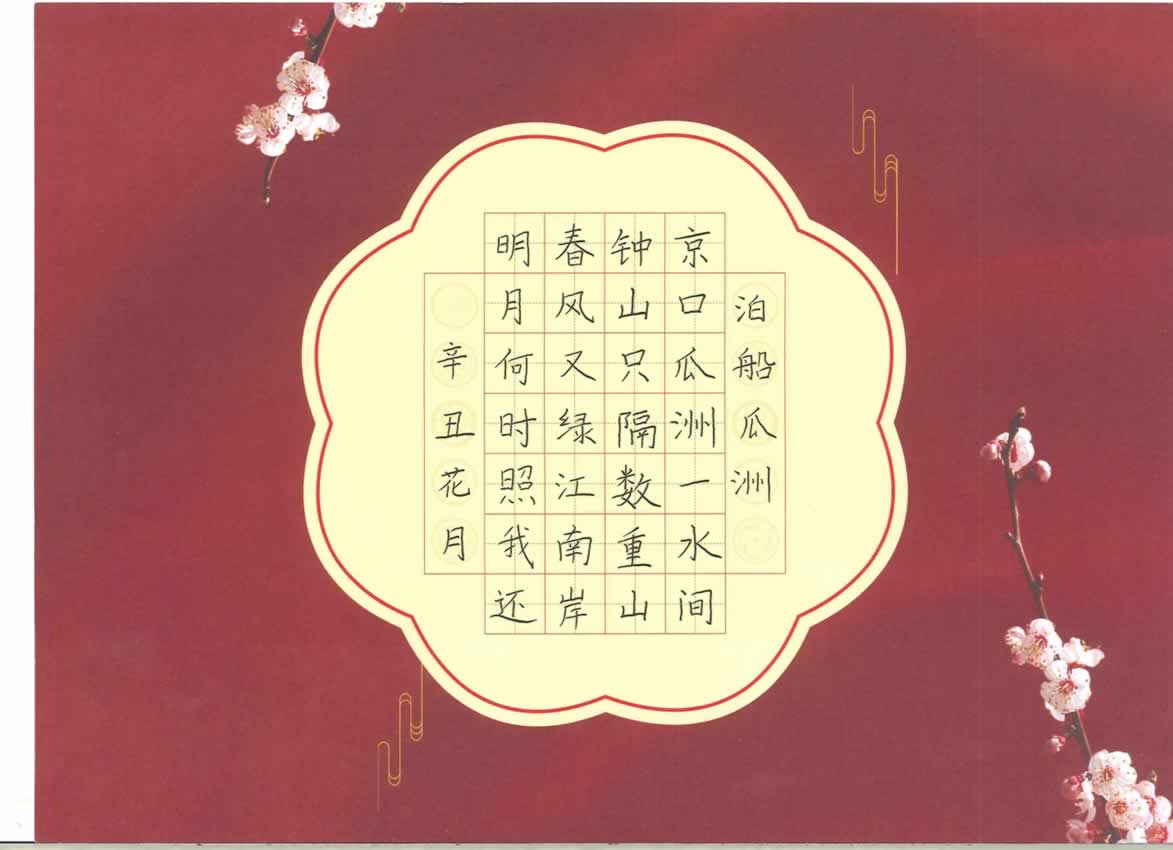 泊船瓜洲
京口瓜洲一水间
钟山只隔数重山
春风又绿江南岸
明月何时照我还
辛丑花月